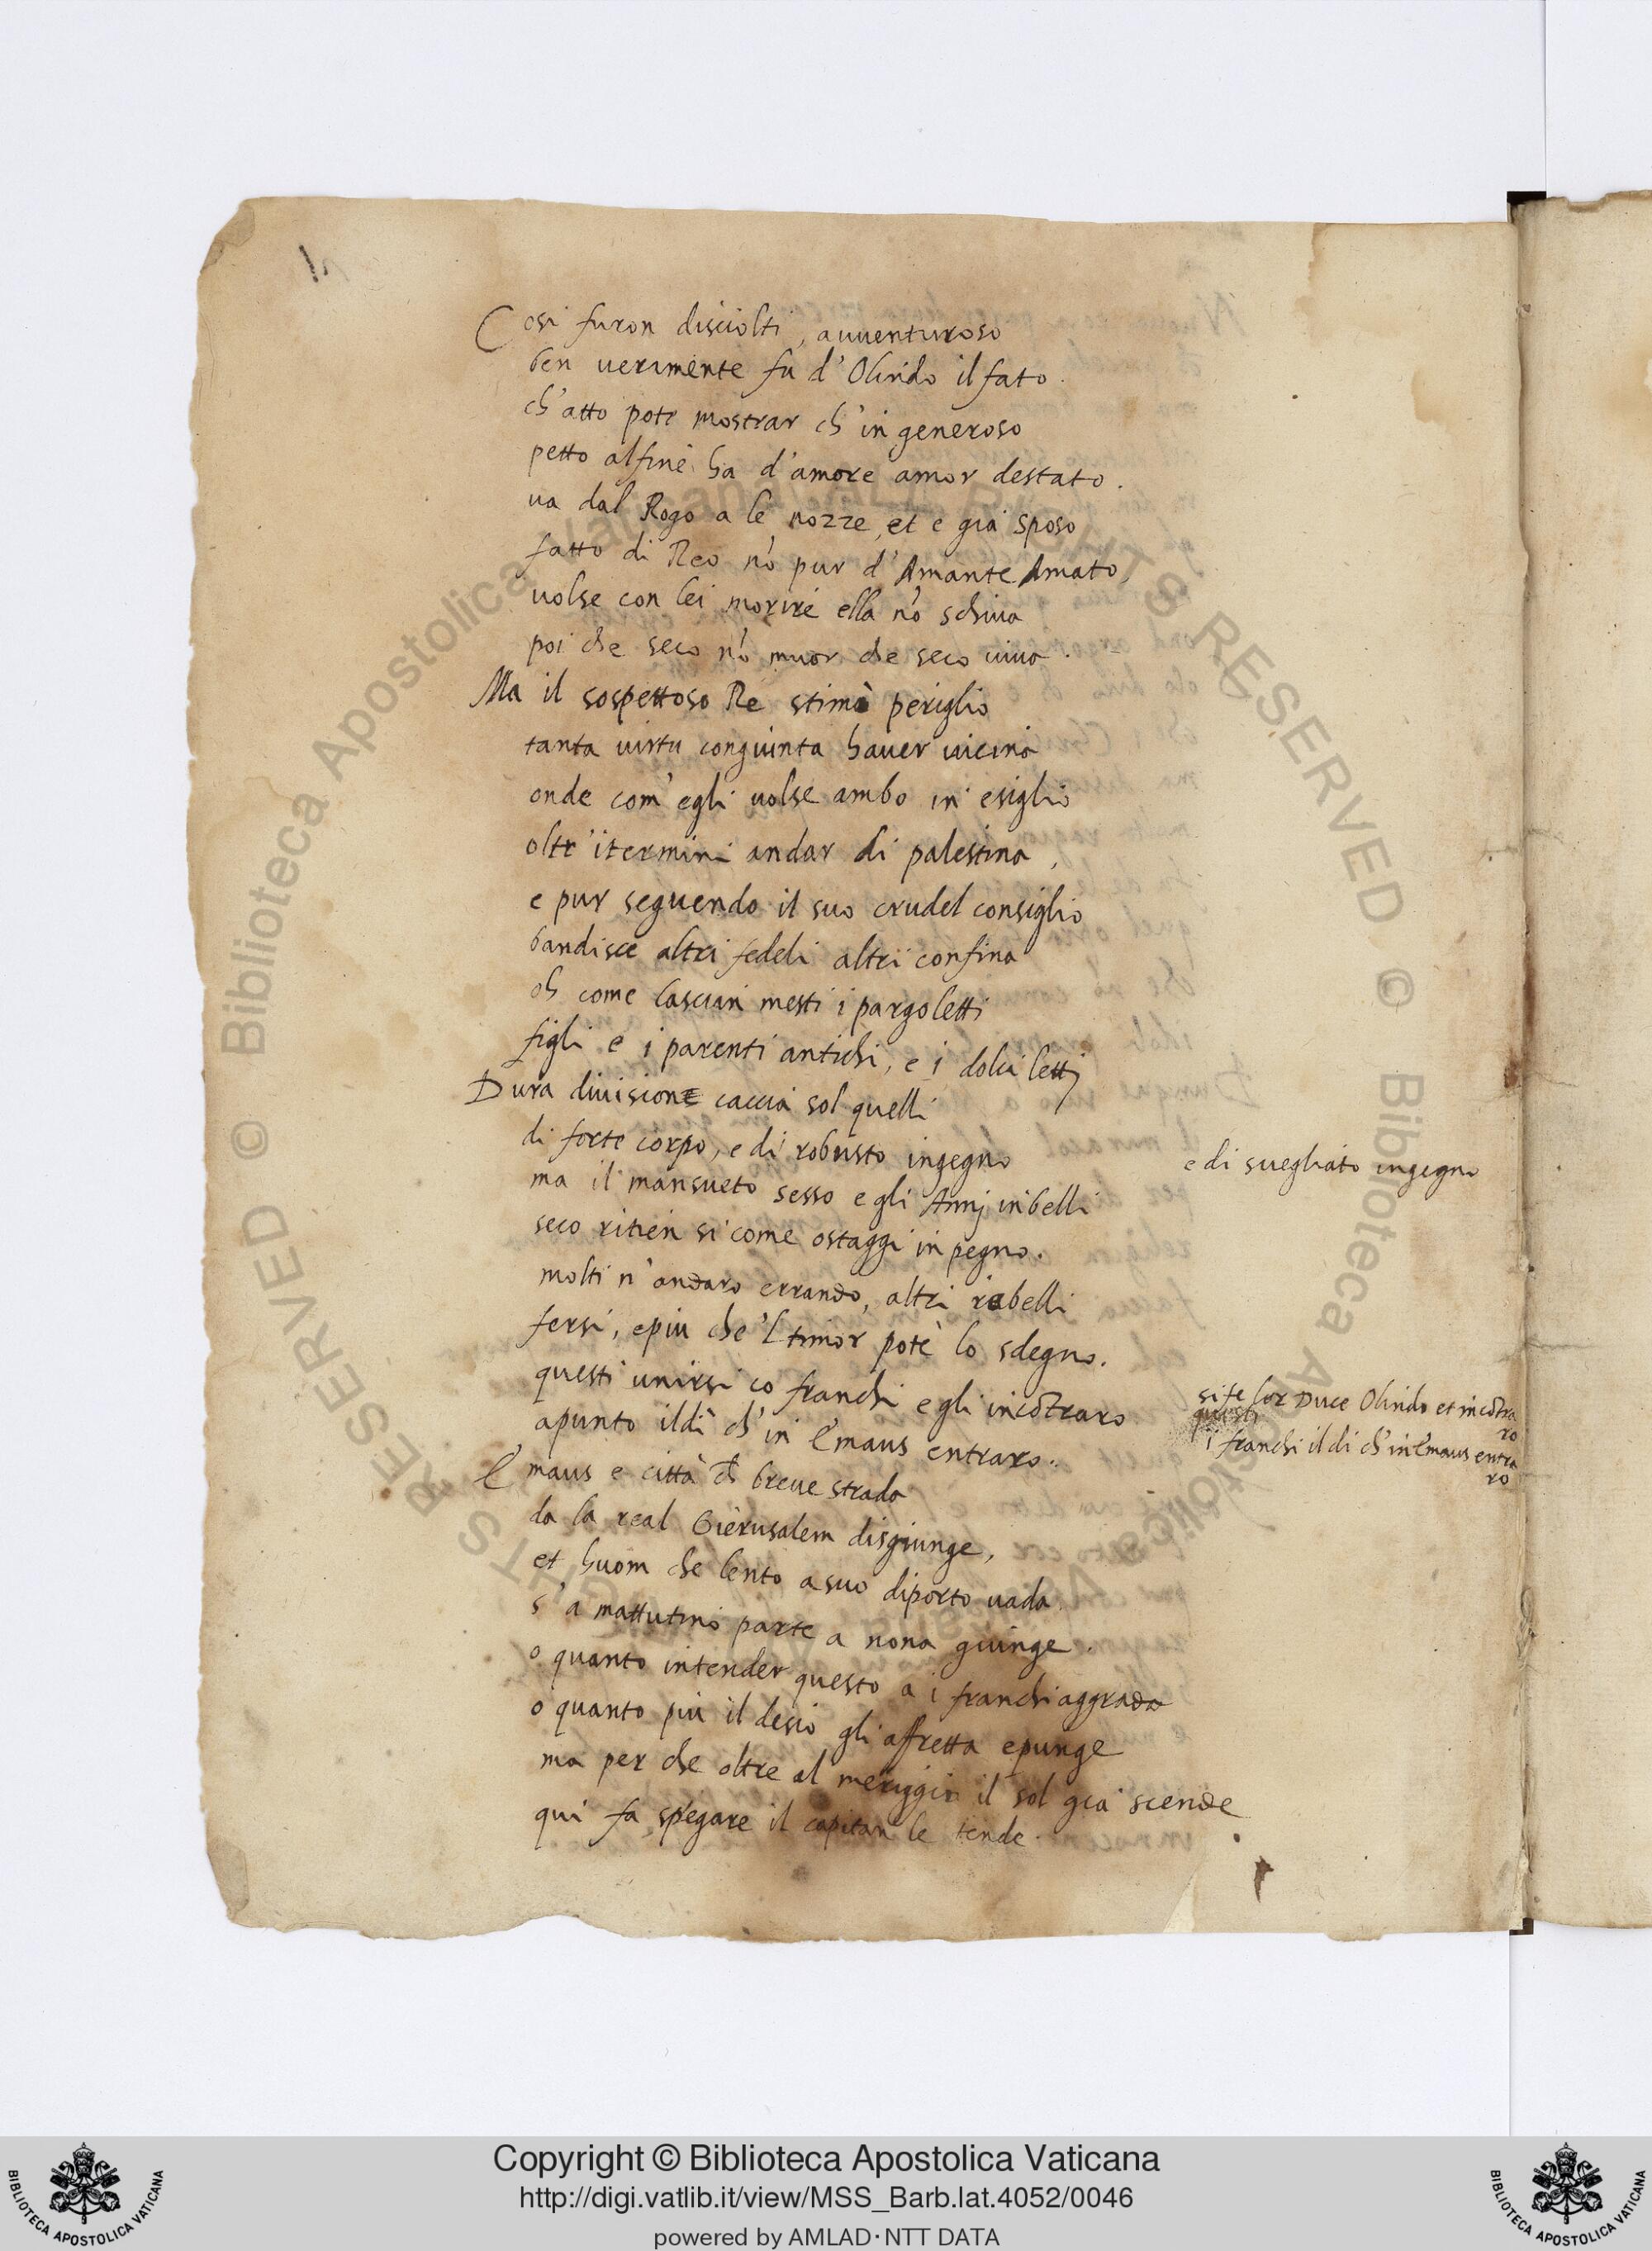 Cosi furon disciolti, auuenturoso
ben ueramente fu d'Olindo il fato.
ch'atto pote mostrar ch'in generoso
petto alfine ha d'amore amor destato.
ua dal Rogo a le nozze, et e gia sposo
fatto di Reo nō pur d'Amante Amato,
uolse con lei morire ella nō schiua
poi che seco nō muor che seco uiua.
Ma il sospettoso Re stimò periglio
tanta uirtu congiunta hauer uicina
onde com'egli uolse ambo in esiglio
oltr'i termini andar di palestina,
e pur seguendo il suo crudel consiglio
bandisce altri fedeli altri confina
oh come lascian mesti i pargoletti
figli e i parenti antichi, e i dolci letti
Dura diuisione caccia sol quelli
di forte corpo, e di robusto ingegno
e di suegliato ingegno
ma il mansueto sesso e gli Annj inbelli
seco ritien si come ostaggi in pegno.
molti n'andaro errando, altri rebelli
fersi, e piu che'l timor potè lo sdegno.
questi unirsi co franchi e gli incōtraro
si fe lor Duce Olindo et incōtra
ro
questi
i franchi il di ch'in Emaus entra
ro
apunto il dì ch'in Emaus entraro.
Emaus e città ch breue strada
da la real Gierusalem disgiunge,
et huom che lento a suo diporto uada
s'a mattutino parte a nona giunge.
o quanto intender questo a i franchi aggrada
o quanto più il desio gli affretta e punge
ma per che oltre al meriggio il sol già scende
qui fa spegare il capitan le tende.
Copyright © Biblioteca Apostolica Vaticana
http://digi.vatlib.it/view/MSS_Barb.lat.4052/0046
powered by AMLAD·NTT DATA
BIBLIOTECA APOSTOLICA VATICANA
BIBLIOTECA APOSTOLICA VATICANA